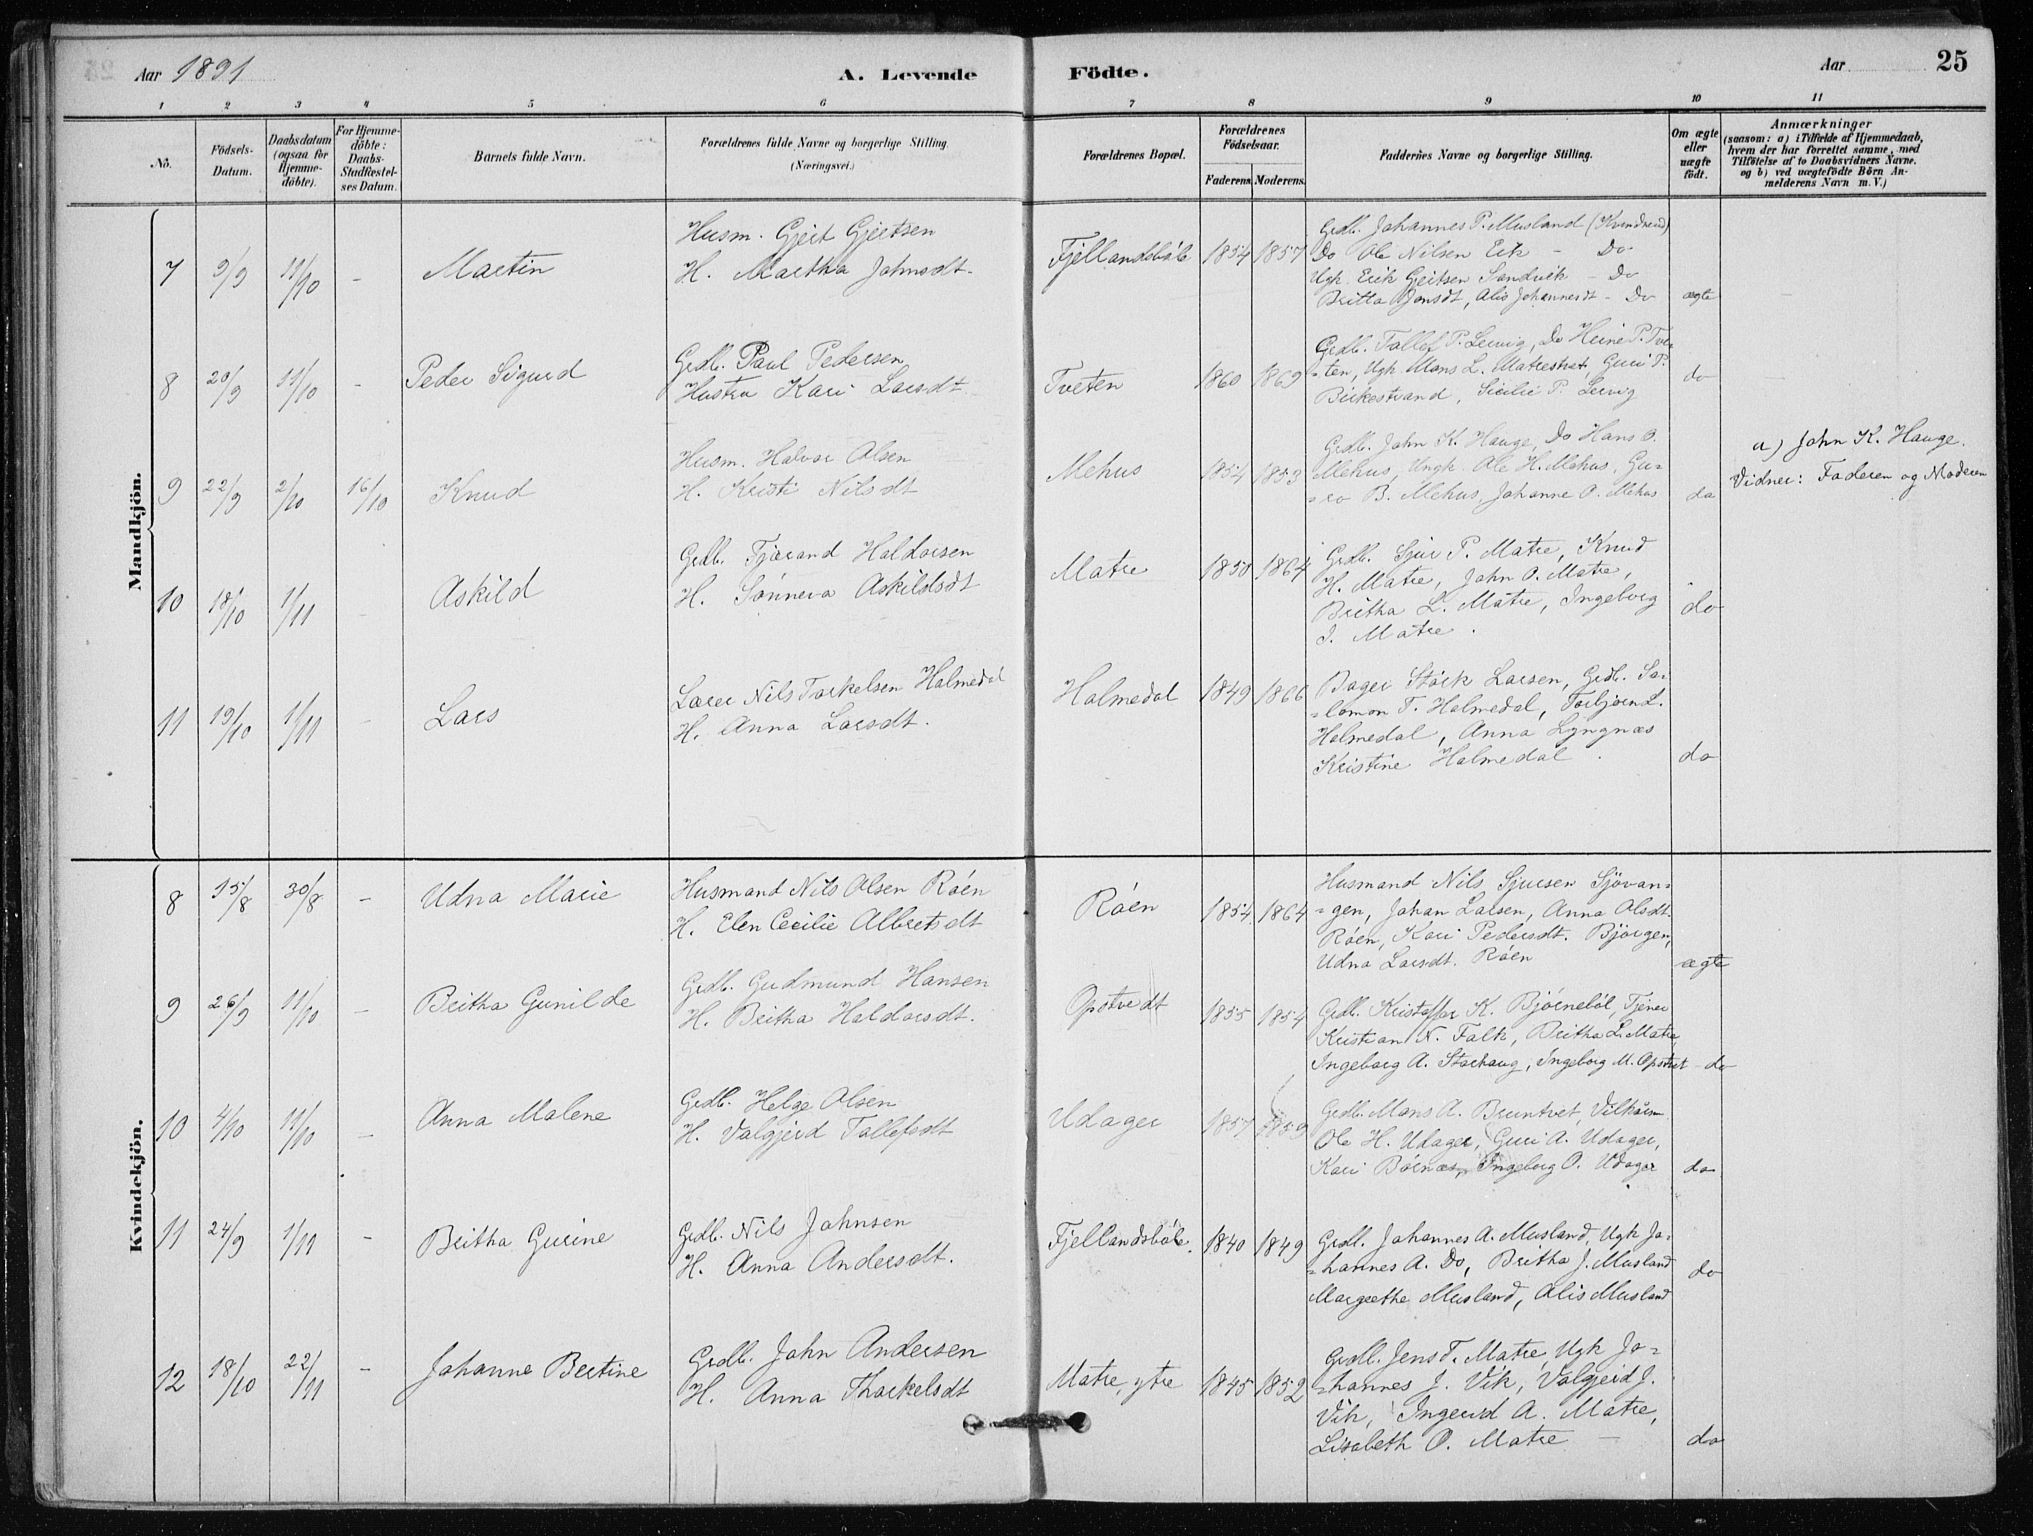 Aar 1891
A. Levende Födte.
Aar
25
1 2 3 4 5 6 7 8 9 10 11
No. Födsels-Datum. Daabsdatum (ogsaa for Hjemme-döbte). For Hjemme-döbte: Daabs-Stadfæstel-ses Datum. Barnets fulde Navn. Forældrenes fulde Navne og borgerlige Stilling. (Næringsvei.) Forældrenes Bopæl. Forældrenes Födselsaar. Faderens. Moderens. Faddernes Navne og borgerlige Stilling. Om ægte eller uægte födt. Anmærkninger (saasom: a) i Tilfælde af Hjemmedaab, hvem der har forrettet samme, med Tilföielse af to Daabsvidners Navne. og b) ved uægtefödte Börn An-melderens Navn m.V.)
Mandkjön.
7 9/9 11/10 - Martin
Husm. Gjert Gjertsen
H. Martha Johnsdt.
Fjellandsböle 1854 1857
Grdb. Johannes P. Musland (Kvindherred)
Do Ole Nilsen Eik - Do
Ugk. Erik Geitsen Sandvik - Do
Britta Jonsdt, Alis Johannesdt - Do ægte
8 20/9 11/10 - Peder Sigurd
Grdb. Paul Pedersen
Hustru Kari Larsdt.
Tveten 1860 1869
Grdb. Tollef P. Lervig, Do Heine P. Tve-
-ten, Ugk. Mons L. Matrestrat, Guri P.
Birkestrand, Sicilie P. Lervig do
9 22/9 2/10 16/10 Knud
Husm. Halvor Olsen
H. Kristi Nilsdt
Mehus 1854 1853
Grdb. John K. Hauge, Do Hans O.
Mehus, Ungk. Ole H. Mehus, Gu-
-ro B. Mehus, Johanne O. Mehus do
a) John K. Hauge.
Vidner: Faderen og Moderen
10 18/10 1/11 - Askild
Grdb. Tjærand Haldorsen
H. Sönneva Askildsdt
Matre 1850 1864
Grdb. Sjur P. Matre, Knud
H. Matre, John O. Matre,
Britha L. Matre, Ingeborg
I. Matre. do
11 19/10 1/11 - Lars
Lærer Nils Torkelsen Holmedal
H. Anna Larsdt.
Holmedal 1849 1866
Bager Störk Larsen, Grdb. Sa-
-lomon T. Holmedal, Torbjörn L.
Holmedal, Anna Lyngnæs
Kristine Holmedal. do
Kvindekjön.
8 15/8 30/8 - Udna Marie
Husmand Nils Olsen Röen
H. Elen Cecilie Albretsdt
Röen 1854 1864
Husmand Nils Sjursen Sjövan-
-gen, Johan Larsen, Anna Olsdt.
Röen, Kari Pedersdt. Bjorgen,
Udna Larsdt. Röen ægte
9 26/9 11/10 - Britha Gunilde
Grdb. Gudmund Hansen
H. Britha Haldorsdt.
Opstvedt 1855 1854
Grdb. Kristoffer K. Bjørneböl, Tjener
Kristian N. Falk, Britha L. Matre
Ingeborg A. Storhaug, Ingeborg M. Opstvet - do
10 4/10 11/10 - Anna Malene
Grdb. Helge Olsen
H. Valgjerd Tollefsdt
Udager 1857 1859
Grdb. Mons A. Bruntvet, Vilkårm.
Ole H. Udager, Guri A. Udager,
Kari Börnæs, Ingeborg O. Udager do
11 24/9 1/11 - Britha Gurine
Grdb. Nils Johnsen
H. Anna Andersdt.
Fjellandsböle. 1840 1849
Grdb. Johannes A. Musland, Ugk Jo-
-hannes A. Do, Britha J. Musland
Margrethe Musland, Alis Musland do
12 18/10 22/11 - Johanne Bertine
Grdb. John Andersen
H. Anna Thorkelsdt
Matre, ytre 1845 1852
Grdb. Jens T. Matre, Ugk Jo-
-hannes J. Vik, Valgjerd J.
Vik, Ingerid A. Matre,
Lisabeth O. Matre - do